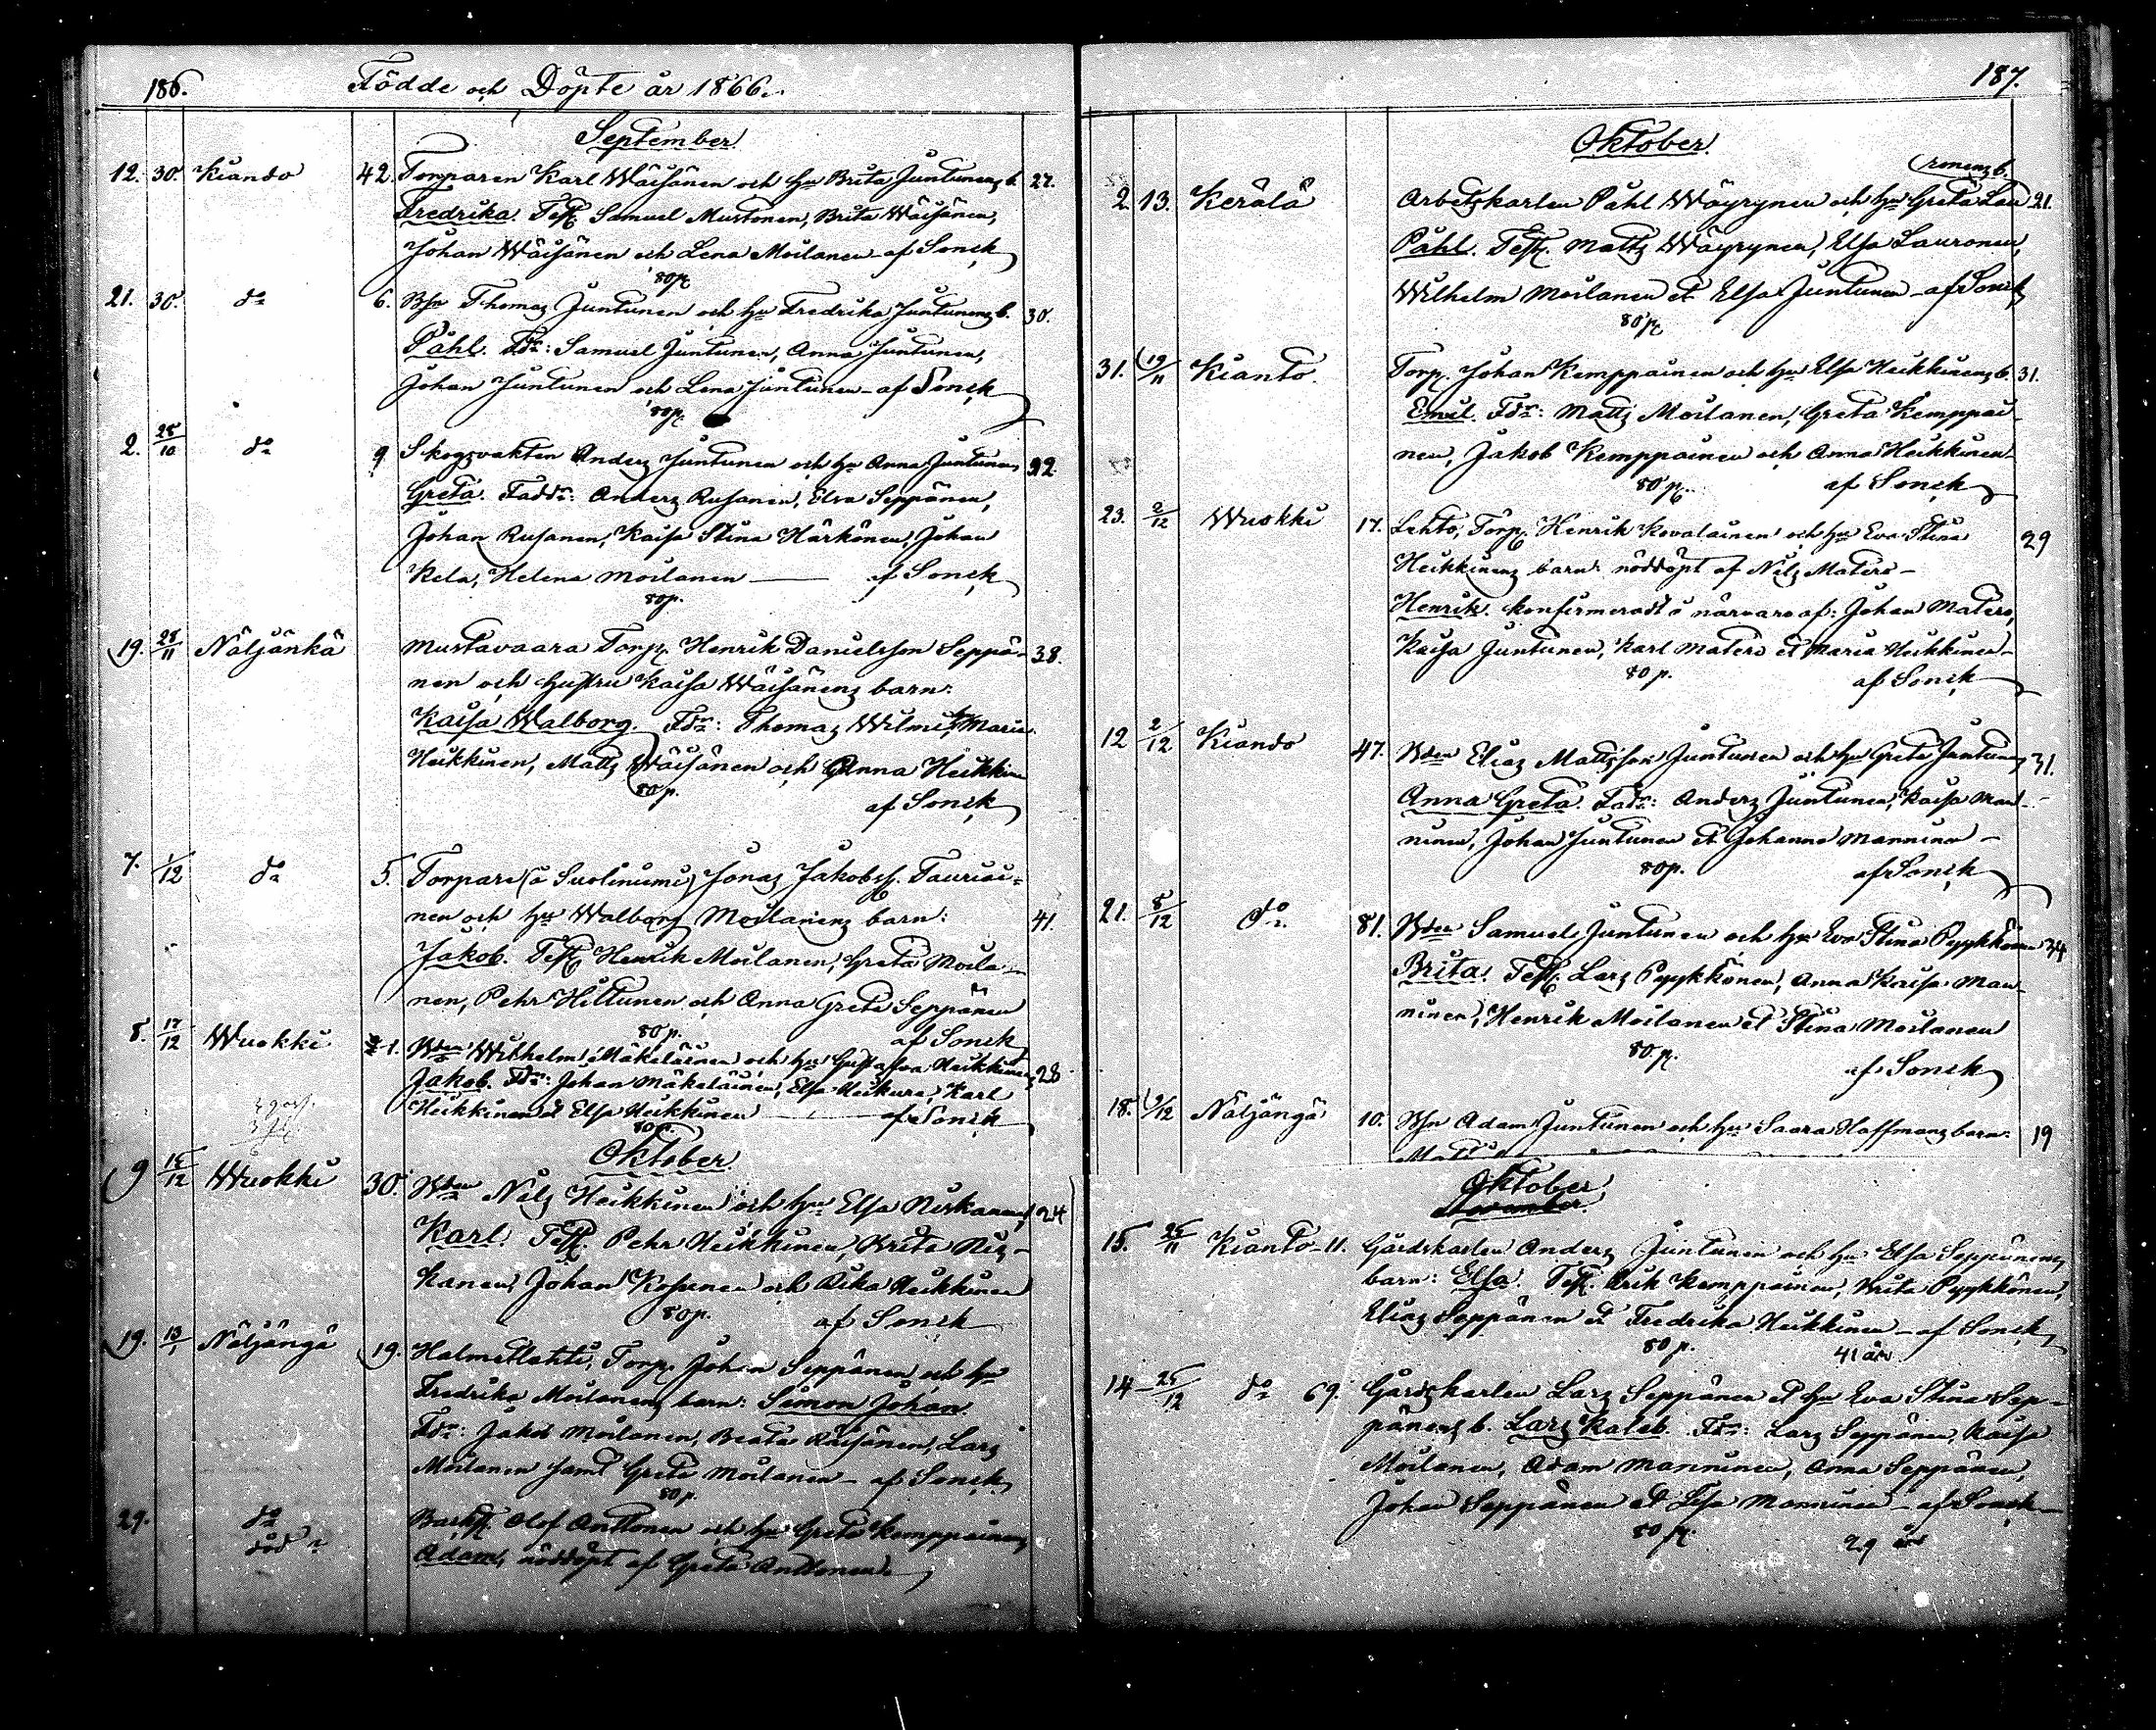 186. Födde och Döpte år 1866.
September
12. 30. Kiando 42. Torparen Karl Wäisänen och hu Brita Juntunens b. 27.
Fredrika. Test. Samuel Mustonen, Brita Wäisänen,
Johan Wäisänen och Lena Moilanen - af Sonck
80 p.
21. 30. do 6. Bn Thomas Juntunen och hu Fredrika Juntunens b. 30.
Påhl. Fdr: Samuel Juntunen, Anna Juntunen,
Johan Juntunen och Lena Juntunen - af Sonck
80 p.
2. 28/10 do 9 Skogsvakten Anders Juntunen och hu Anna Juntunens 22
Greta. Faddr: Anders Rusanen, Elva Seppänen,
Johan Rusanen, Kaisa Stina Härkönen, Johan
Kela, Helena Moilanen — af Sonck
80 p.
19. 28/11 Näljänkä Mustavaara Torp. Henrik Danielsson Seppä- 38.
nen och hustru Kaisa Wäisänens barn:
Kaisa Walborg. Fdr: Thomas Wilmi, Maria
Heikkinen, Matts Wäisänen och Anna Heikkinen
80 p. af Sonck
7. 1/12 do 5. Torpare (å Suolinumi) Jonas Jakobss. Tauriai=
nen och hu Walborg Moilanens barn: 41.
Jakob. Test. Henrik Moilanen, Greta Moila-
nen, Pehr Hiltunen och Anna Greta Seppänen
80 p. af Sonck
8. 17/12 Wuokki 1. Wden Wilhelm Mäkeläinen och hu Gustafva Heikkinens 28
Jakob. Fdr: Johan Mäkeläinen, Elsa Heikura, Karl
Heikkinen et Elsa Heikkinen — af Sonck
80 p.
Oktober
9 16/12 Wuokki 30. Wden Nils Heikkinen och hu Elsa Niskanens 24
Karl. Test. Pehr Heikkinen, Brita Nis-
kanen, Johan Kesunen och Rika Heikkinen
80 p. af Sonck
19. 13/1 Näljängä 19. Halmetlahti, Torp. Johan Seppänen och hu
Fredrika Moilanens barn: Simon Johan.
Fdr: Jakob Moilanen, Beata Räisänen, Lars
Moilanen samt Greta Moilanen - af Sonck
80 p.
29. do Backst. Olof Anttonen och hu Greta Kemppainens
död Adam, nöddöpt af Greta Anttonen.
187.
Oktober
ronens b.
2. 13. Kerälä Arbetskarlen Påhl Wäyrynen och hu Greta Lau 21.
Påhl. Test. Matts Wäyrynen, Elsa Lauronen,
Wilhelm Moilanen et Elsa Juntunen - af Sonck
80 p.
31. 19/11 Kianto Torp. Johan Kemppainen och hu Elsa Heikkinens b. 31.
Emil. Fdr: Matts Moilanen, Greta Kemppai-
nen, Jakob Kemppainen och Anna Heikkinen
80 p. af Sonck
23. 2/12 Wuokki 17. Lehto, Torp. Henrik Kovalainen och hu Eva Stina 29
Heikkinens barn nöddöpt af Nils Matero -
Henrik. konfirmeradt i närvaro af: Johan Matero,
Kaisa Juntunen, Karl Matero et Maria Heikkinen -
80 p. af Sonck
12 2/12 Kiando 47. Wden Elias Mattsson Juntunen och hu Greta Juntunens 31.
Anna Greta. Fadr: Anders Juntunen, Kaisa Man-
ninen, Johan Juntunen et Johanna Manninen -
80 p. af Sonck
21. 8/12 do 81. Wden Samuel Juntunen och hu Eva Stina Pyykkönens 34
Brita. Test. Lars Pyykkönen, Anna Kaisa Man-
ninen, Henrik Moilanen et Stina Moilanen
80 p. af Sonck
18. 9/12 Näljängä 10. Bn Adam Juntunen och hu Saara Hoffmans barn: 19
Oktober
November
15. 25/11 Kianto 11. Gårdskarlen Anders Juntunen och hu Elsa Seppänens
barn: Elsa. Test. Erik Kemppainen, Brita Pyykkönen,
Elias Seppänen et Fredrika Heikkinen - af Sonck
80 p. 41 år
14 25/12 do 69. Gårdskarlen Lars Seppänen et hu Eva Stina Sep-
pänens b. Lars Kaleb. Fdr: Lars Seppänen, Kaisa
Moilanen, Adam Manninen, Anna Seppänen,
Johan Seppänen et Lisa Manninen - af Sonck -
80 p. 29 år